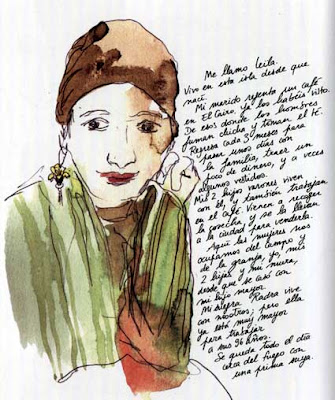 Me llamo Leila.
Vivo en esta isla desde que
nací.
Mi marido regenta un café
en El Cairo, ya los habéis visto.
De esos donde los hombres
fuman chicha y toman el té.
Regresa cada 3 meses para
pasar unos días con
la familia, traer un
poco de dinero, y a veces
algunos vestidos.
Mis 2 hijos varones viven
con él, y también trabajan
en el café. Vienen a recoger
la cosecha, y se la llevan
a la ciudad para venderla.
Aquí las mujeres nos
ocupamos del campo y
de la granja, yo, mis
2 hijas y mi nuera,
desde que se casó con
mi hijo mayor.
Mi suegra Radra vive
con nosotros, pero ella
ya está muy mayor
para trabajar
a sus 96 años.
Se queda todo el día
cerca del fuego con
una prima suya.